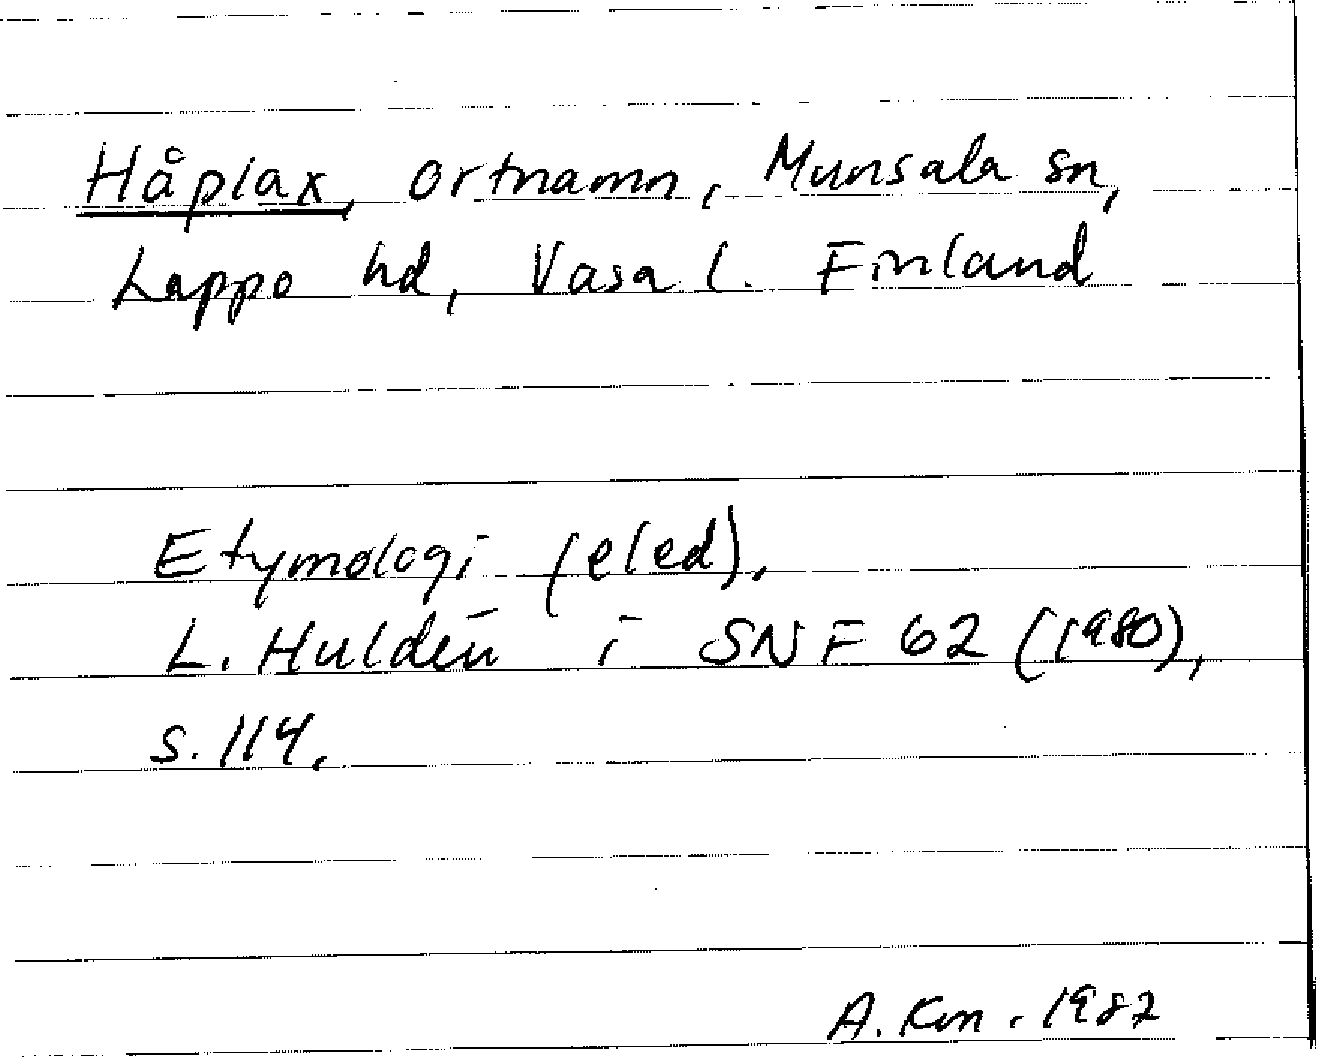 Håplax, ortnamn, Munsala sn,
Lappo hd, Vasa l. Finland
Etymologi (eled),
L. Huldén i SNF 62 (1980),
s. 114.
A. Kn. 1987